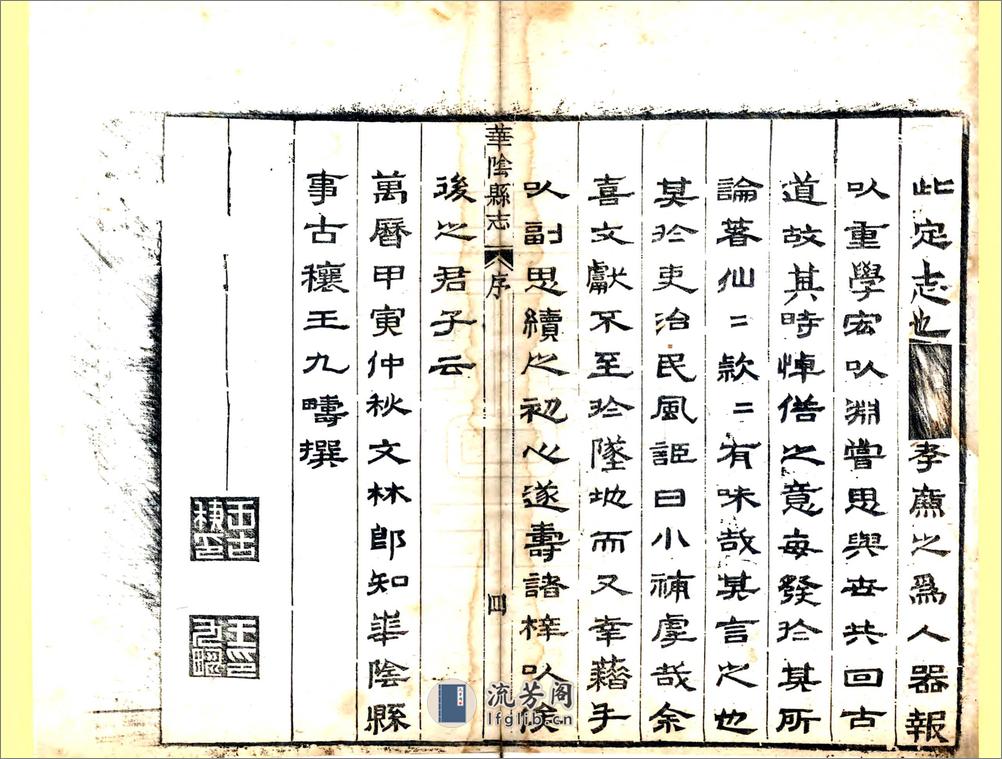 此定志也孝廉之為人器報
以重學宏以淵嘗思與世共回古
道故其時悼俗之意每發於其所
論著仙〻款〻有味哉其言之也
其於吏治民風詎曰小補虖哉余
喜文獻不至於墜地而又幸藉手
以副思續之初心遂壽諸梓以俟
華陰縣志 序 四
後之君子云
萬曆甲寅仲秋文林郎知華陰縣
事古穰王九疇撰
流芳阁
lfglib.cn